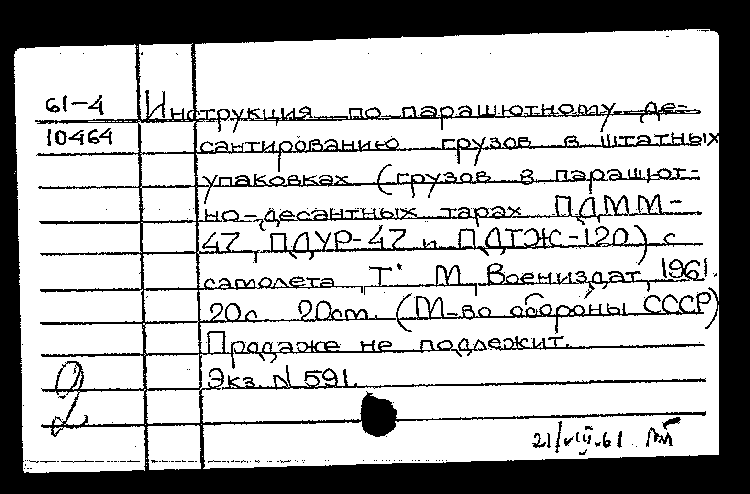 61-4 Инструкция по парашютному де-
10464 сантированию грузов в штатных
упаковках (грузов в парашют-
но-десантных тарах ПДММ-
47, ПДУР-47 и ПДТЖ-120) с
самолета, Т. М, Воениздат, 1961.
20с. 20см. (М-во обороны СССР)
Продаже не подлежит.
Экз. N 591.
2
21/VIII.61